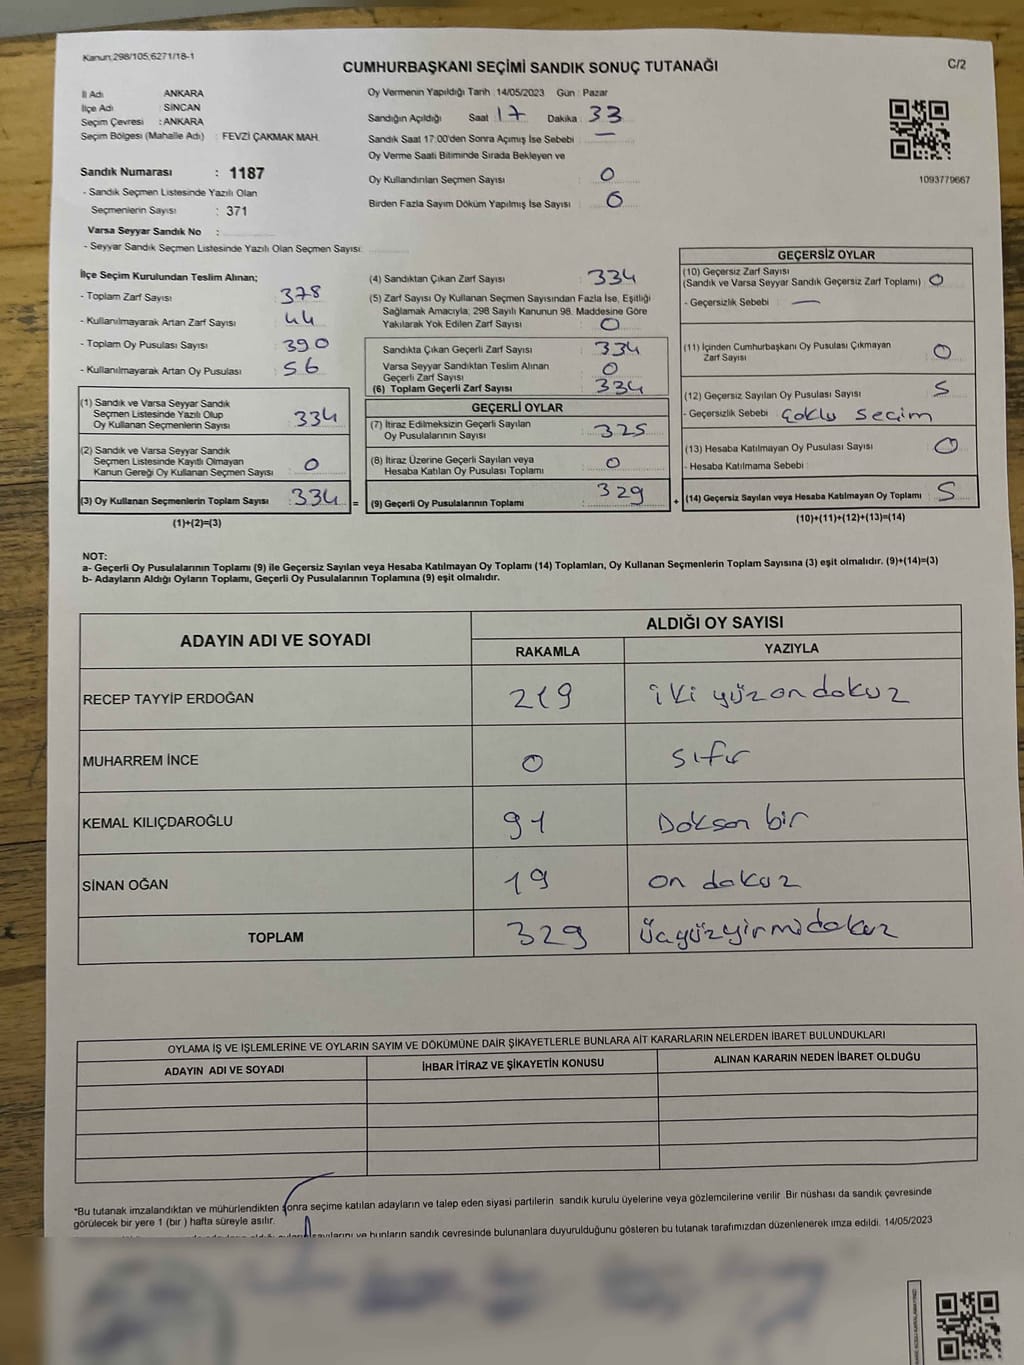 Kanun;298/105;6271/18-1
CUMHURBAŞKANI SEÇİMİ SANDIK SONUÇ TUTANAĞI
C/2
İl Adı ANKARA
İlçe Adı : SİNCAN
Seçim Çevresi : ANKARA
Seçim Bölgesi (Mahalle Adı) : FEVZİ ÇAKMAK MAH.
Oy Vermenin Yapıldığı Tarih :14/05/2023 Gün : Pazar
Sandığın Açıldığı Saat 17 Dakika 33
Sandık Saat 17:00'den Sonra Açılmış İse Sebebi : —
Oy Verme Saati Bitiminde Sırada Bekleyen ve
Oy Kullandırılan Seçmen Sayısı : 0
Birden Fazla Sayım Döküm Yapılmış İse Sayısı : 0
1093779667
Sandık Numarası : 1187
- Sandık Seçmen Listesinde Yazılı Olan
Seçmenlerin Sayısı : 371
Varsa Seyyar Sandık No :
- Seyyar Sandık Seçmen Listesinde Yazılı Olan Seçmen Sayısı:
İlçe Seçim Kurulundan Teslim Alınan;
- Toplam Zarf Sayısı : 378
- Kullanılmayarak Artan Zarf Sayısı : 44
- Toplam Oy Pusulası Sayısı : 390
- Kullanılmayarak Artan Oy Pusulası : 56
(1) Sandık ve Varsa Seyyar Sandık
Seçmen Listesinde Yazılı Olup
Oy Kullanan Seçmenlerin Sayısı : 334
(2) Sandık ve Varsa Seyyar Sandık
Seçmen Listesinde Kayıtlı Olmayan
Kanun Gereği Oy Kullanan Seçmen Sayısı : 0
(3) Oy Kullanan Seçmenlerin Toplam Sayısı : 334 =
(1)+(2)=(3)
(4) Sandıktan Çıkan Zarf Sayısı : 334
(5) Zarf Sayısı Oy Kullanan Seçmen Sayısından Fazla İse, Eşitliği
Sağlamak Amacıyla; 298 Sayılı Kanunun 98. Maddesine Göre
Yakılarak Yok Edilen Zarf Sayısı : 0
Sandıkta Çıkan Geçerli Zarf Sayısı : 334
Varsa Seyyar Sandıktan Teslim Alınan
Geçerli Zarf Sayısı : 0
(6) Toplam Geçerli Zarf Sayısı : 334
GEÇERLİ OYLAR
(7) İtiraz Edilmeksizin Geçerli Sayılan
Oy Pusulalarının Sayısı : 325
(8) İtiraz Üzerine Geçerli Sayılan veya
Hesaba Katılan Oy Pusulası Toplamı : 0
(9) Geçerli Oy Pusulalarının Toplamı : 329 +
GEÇERSİZ OYLAR
(10) Geçersiz Zarf Sayısı
(Sandık ve Varsa Seyyar Sandık Geçersiz Zarf Toplamı) : 0
- Geçersizlik Sebebi : —
(11) İçinden Cumhurbaşkanı Oy Pusulası Çıkmayan
Zarf Sayısı : 0
(12) Geçersiz Sayılan Oy Pusulası Sayısı : 5
- Geçersizlik Sebebi : Çoklu seçim
(13) Hesaba Katılmayan Oy Pusulası Sayısı : 0
- Hesaba Katılmama Sebebi :
(14) Geçersiz Sayılan veya Hesaba Katılmayan Oy Toplamı : 5
(10)+(11)+(12)+(13)=(14)
NOT:
a- Geçerli Oy Pusulalarının Toplamı (9) ile Geçersiz Sayılan veya Hesaba Katılmayan Oy Toplamı (14) Toplamları, Oy Kullanan Seçmenlerin Toplam Sayısına (3) eşit olmalıdır. (9)+(14)=(3)
b- Adayların Aldığı Oyların Toplamı, Geçerli Oy Pusulalarının Toplamına (9) eşit olmalıdır.
ADAYIN ADI VE SOYADI
ALDIĞI OY SAYISI
RAKAMLA YAZIYLA
RECEP TAYYİP ERDOĞAN 219 iki yüz on dokuz
MUHARREM İNCE 0 sıfır
KEMAL KILIÇDAROĞLU 91 Doksan bir
SİNAN OĞAN 19 on dokuz
TOPLAM 329 üçyüzyirmidokuz
OYLAMA İŞ VE İŞLEMLERİNE VE OYLARIN SAYIM VE DÖKÜMÜNE DAİR ŞİKAYETLERLE BUNLARA AİT KARARLARIN NELERDEN İBARET BULUNDUKLARI
ADAYIN ADI VE SOYADI İHBAR İTİRAZ VE ŞİKAYETİN KONUSU ALINAN KARARIN NEDEN İBARET OLDUĞU
*Bu tutanak imzalandıktan ve mühürlendikten sonra seçime katılan adayların ve talep eden siyasi partilerin sandık kurulu üyelerine veya gözlemcilerine verilir. Bir nüshası da sandık çevresinde
görülecek bir yere 1 (bir) hafta süreyle asılır.
sayılarını ve bunların sandık çevresinde bulunanlara duyurulduğunu gösteren bu tutanak tarafımızdan düzenlenerek imza edildi. 14/05/2023